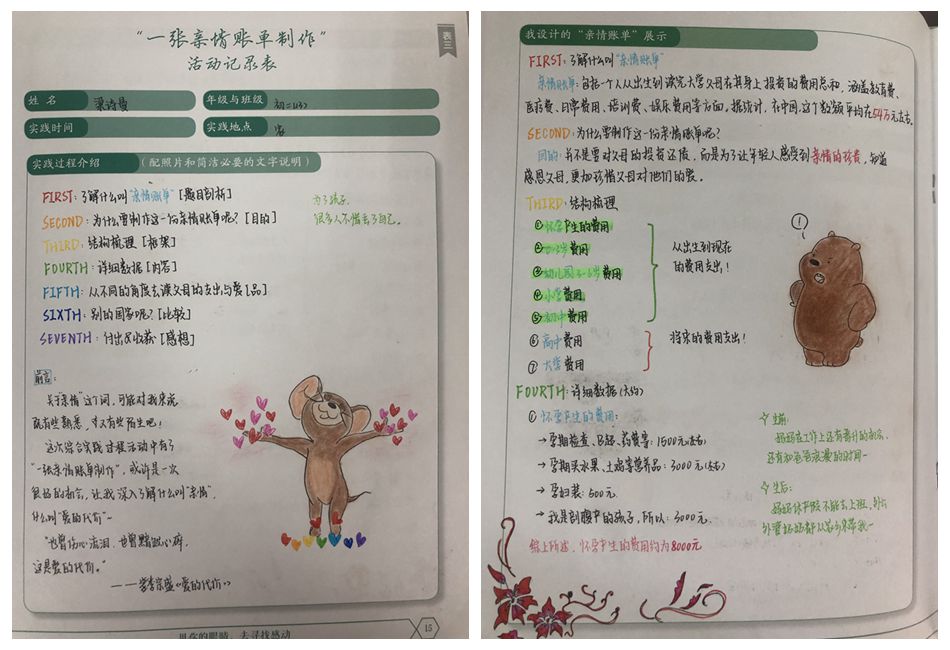 "一张亲情账单制作"
活动记录表
表三
姓 名 梁诗曼
年级与班级 初二(13)
实践时间
实践地点 家
实践过程介绍 (配照片和简洁必要的文字说明)
FIRST: 了解什么叫"亲情账单"[题目剖析]
SECOND: 为什么要制作这一份亲情账单呢?[目的]
THIRD: 结构梳理[框架]
FOURTH: 详细数据[内容]
FIFTH: 从不同的角度去谈父母的支出与爱[品]
SIXTH: 别的国家呢?[比较]
SEVENTH: 付出及收获[感想]
为了孩子,
很多人不惜丢了自己。
前言:
关于"亲情"这个词,可能对我来说
既有些熟悉,又有些陌生吧!
这次综合实践过程活动中有了
"一张亲情账单制作",或许是一次
很好的机会,让我深入了解什么叫"亲情",
什么叫"爱的代价"~
"也曾伤心流泪,也曾黯然心碎,
这是爱的代价。"
——李宗盛《爱的代价》
用你的眼睛,去寻找感动
15
我设计的"亲情账单"展示
FIRST: 了解什么叫"亲情账单"
亲情账单:包括一个人从出生到读完大学父母在其身上投资的费用总和,涵盖教育费、
医药费、日常费用、培训费、娱乐费用等方面。据统计,在中国,这个数额平均在54万元左右。
SECOND: 为什么要制作这一份亲情账单呢?
目的:并不是要对父母的投资还债,而是为了让年轻人感受到亲情的珍贵,知道
感恩父母,更加珍惜父母对他们的爱。
THIRD: 结构梳理
① 怀孕产生的费用
② 0-3岁费用
③ 幼儿园3-6岁费用
④ 小学费用
⑤ 初中费用
从出生到现在
的费用支出!
⑥ 高中费用
⑦ 大学费用
将来的费用支出!
!
FOURTH: 详细数据(大约)
① 怀孕产生的费用:
→ 孕期检查、B超、药费等:1500元(左右)
→ 孕期买水果、土鸡等营养品:3000元(左右)
→ 孕妇装:500元
→ 我是剖腹产的孩子,所以:3000元。
综上所述,怀孕产生的费用约为8000元
生前:
妈妈在工作上还有晋升的机会,
还有和爸爸浪漫的时间~
生后:
妈妈休产假不能去上班,